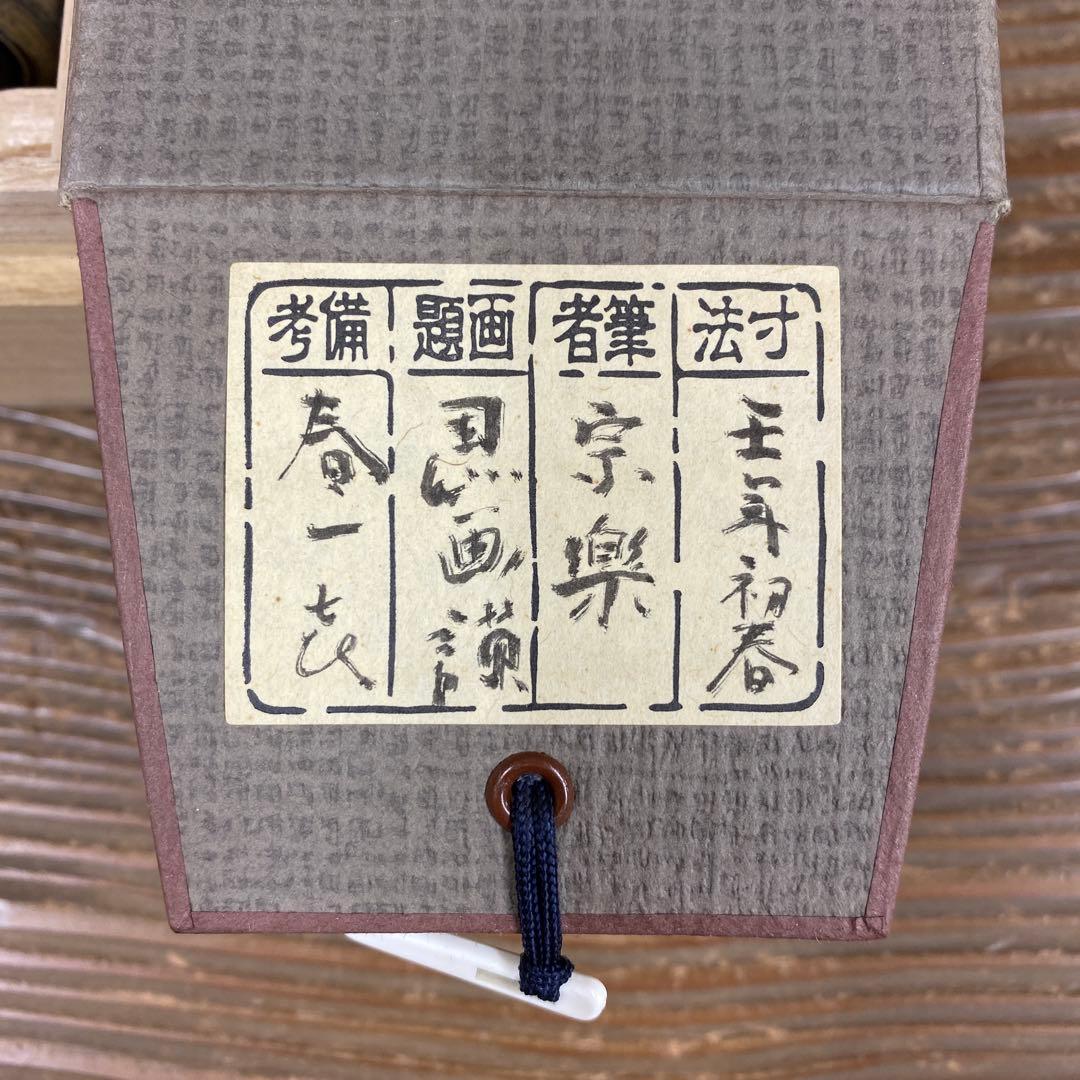 寸法
壬年初春
筆者
宗樂
画題
画讃
備考
春一